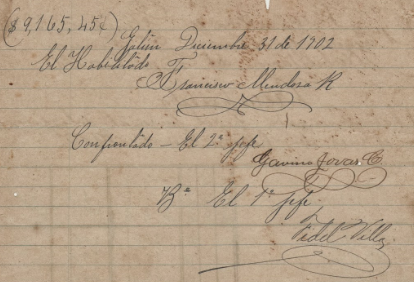 ($ 9,165,45¢)
Galán Diciembre 31 de 1902
El Habilitado
Francisco Mendoza R
Confrontado - El 2º jefe
Gavino Tovar C
Bº El 1º jefe.
Fidel Villa